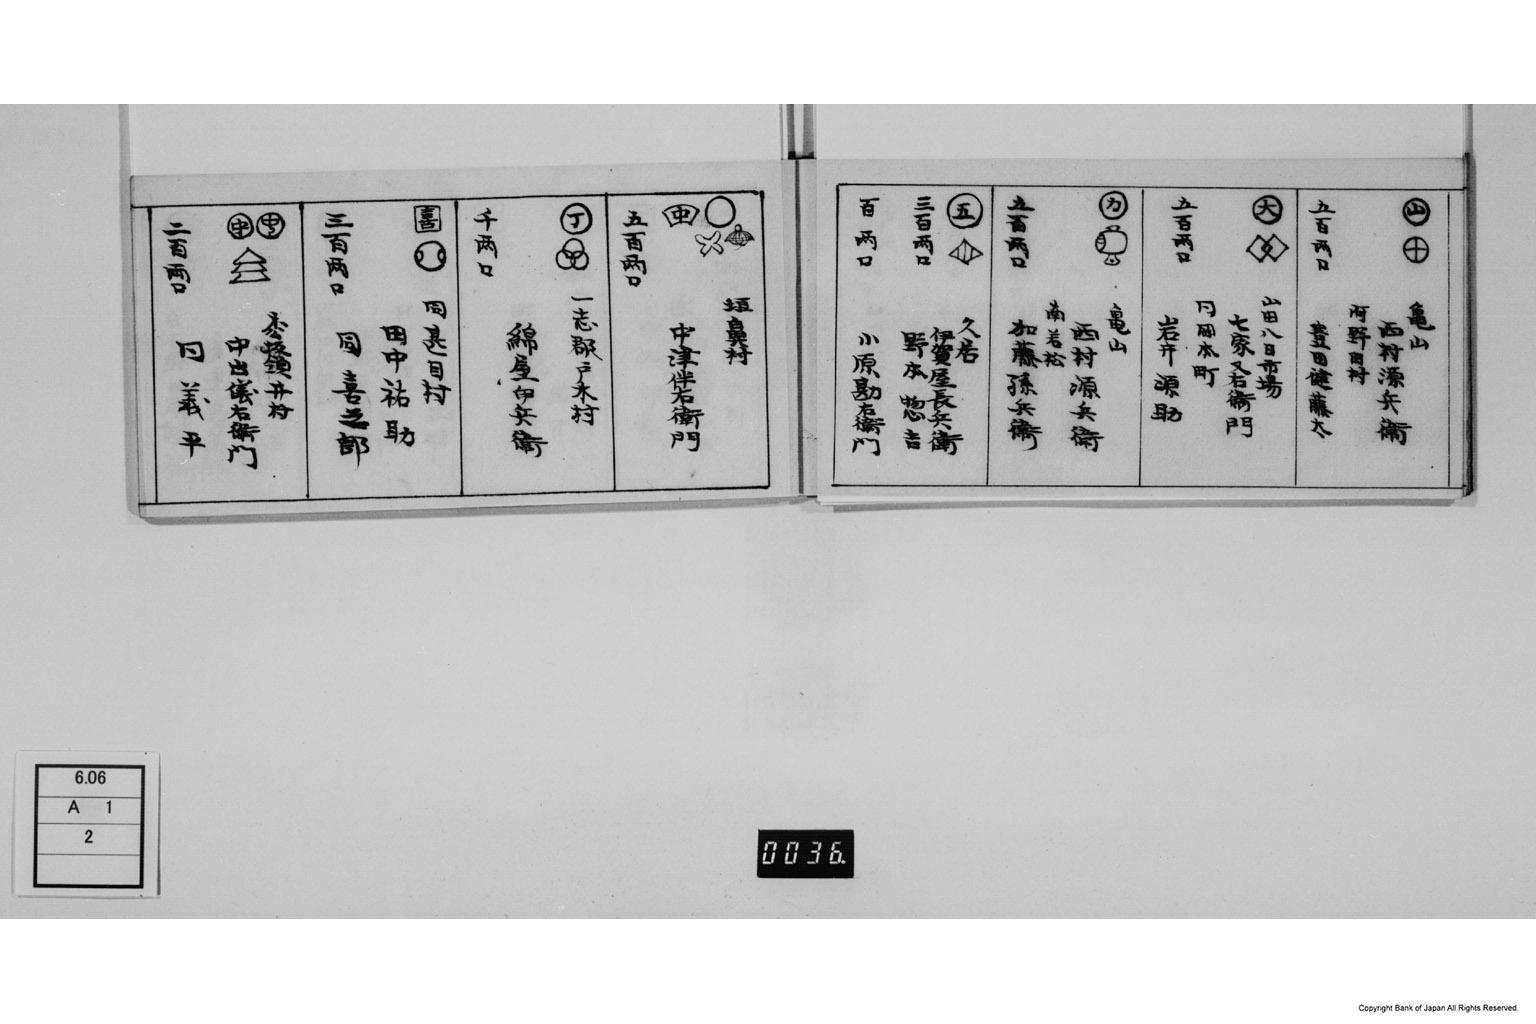 山
五百両口
亀山
西村源兵衛
河野田村
豊田健藤太
大
五百両口
山田八日市場
七家又右衛門
同岡本町
岩井源助
カ
五百両口
亀山
西村源兵衛
南若松
加藤孫兵衛
五
三百両口
百両口
久居
伊賀屋長兵衛
野本惣吉
小原勘右衛門
五百両口
垣鼻村
中津伴右衛門
丁
千両口
一志郡戸木村
綿屋伊兵衛
喜
三百両口
同甚目村
田中祐助
同喜之郎
中
二百両口
井村
中出儀右衛門
同義平
6.06
A 1
2
0036.
Copyright Bank of Japan All Rights Reserved.